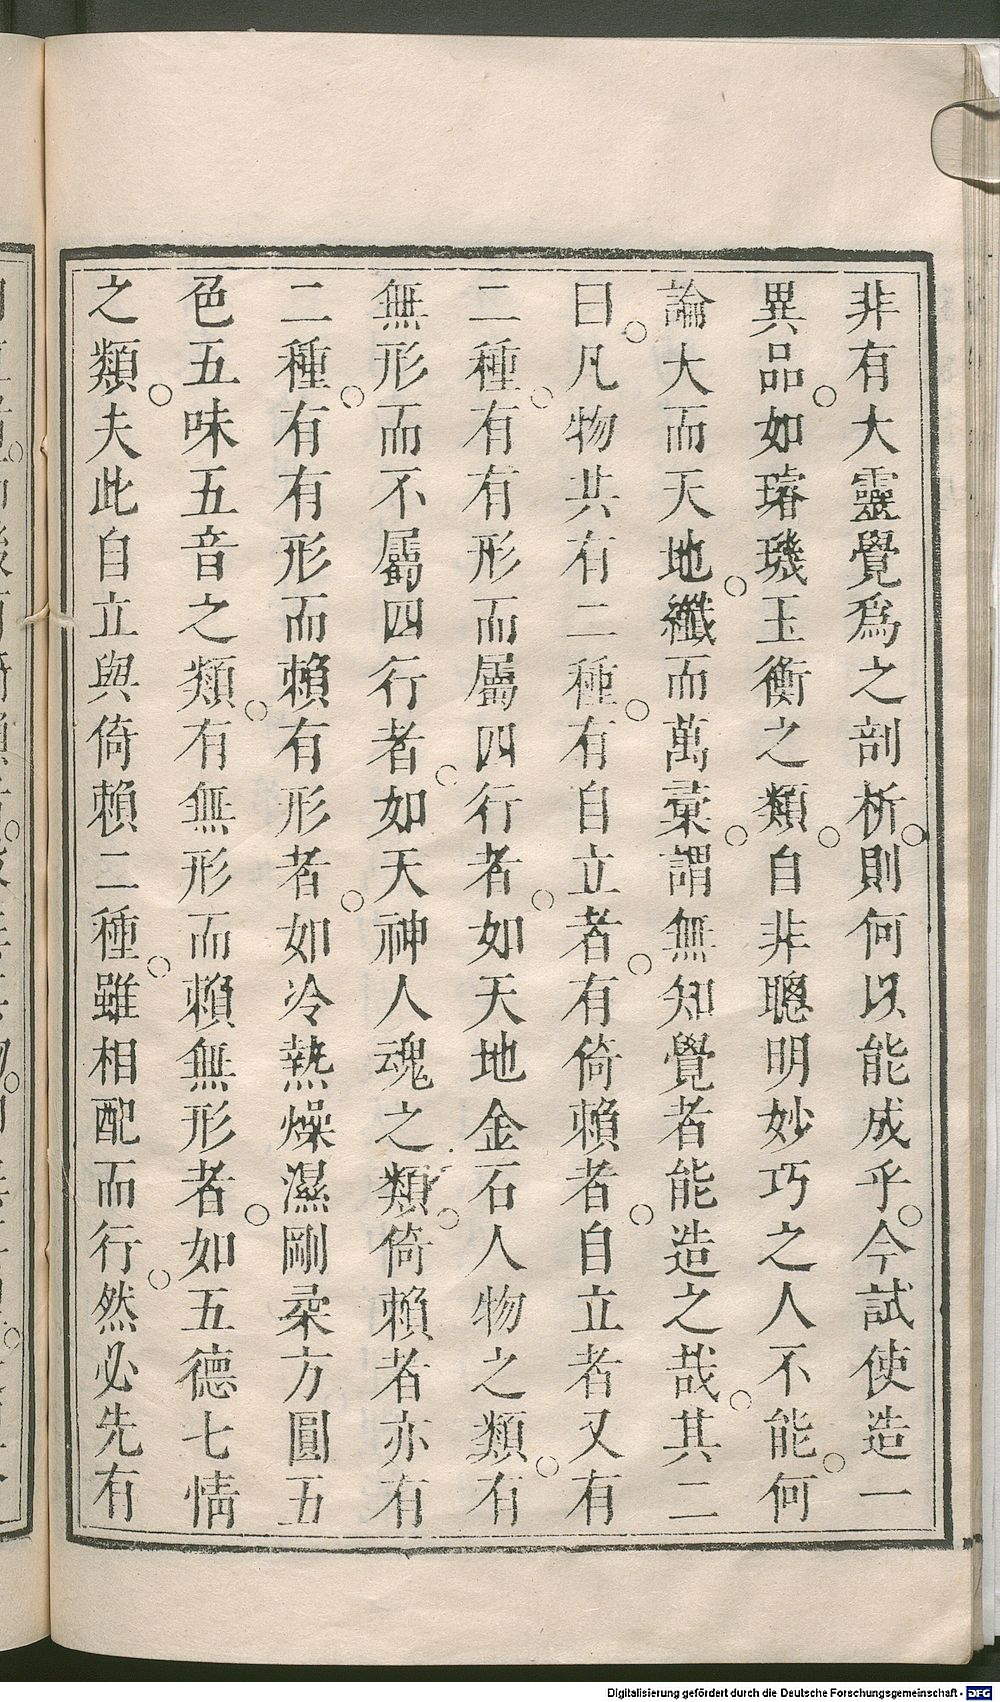 非有大靈覺爲之剖析。則何以能成乎。今試使造一
異品。如璿璣玉衡之類。自非聰明妙巧之人不能。何
論大而天地。纖而萬彙。謂無知覺者能造之哉。其二
曰。凡物共有二種。有自立者。有倚賴者。自立者又有
二種。有有形而屬四行者。如天地金石人物之類。有
無形而不屬四行者。如天神人魂之類。倚賴者亦有
二種。有有形而賴有形者。如冷熱燥濕剛柔方圓五
色五味五音之類。有無形而賴無形者。如五德七情
之類。夫此自立與倚賴二種。雖相配而行。然必先有
Digitalisierung gefördert durch die Deutsche Forschungsgemeinschaft - DFG